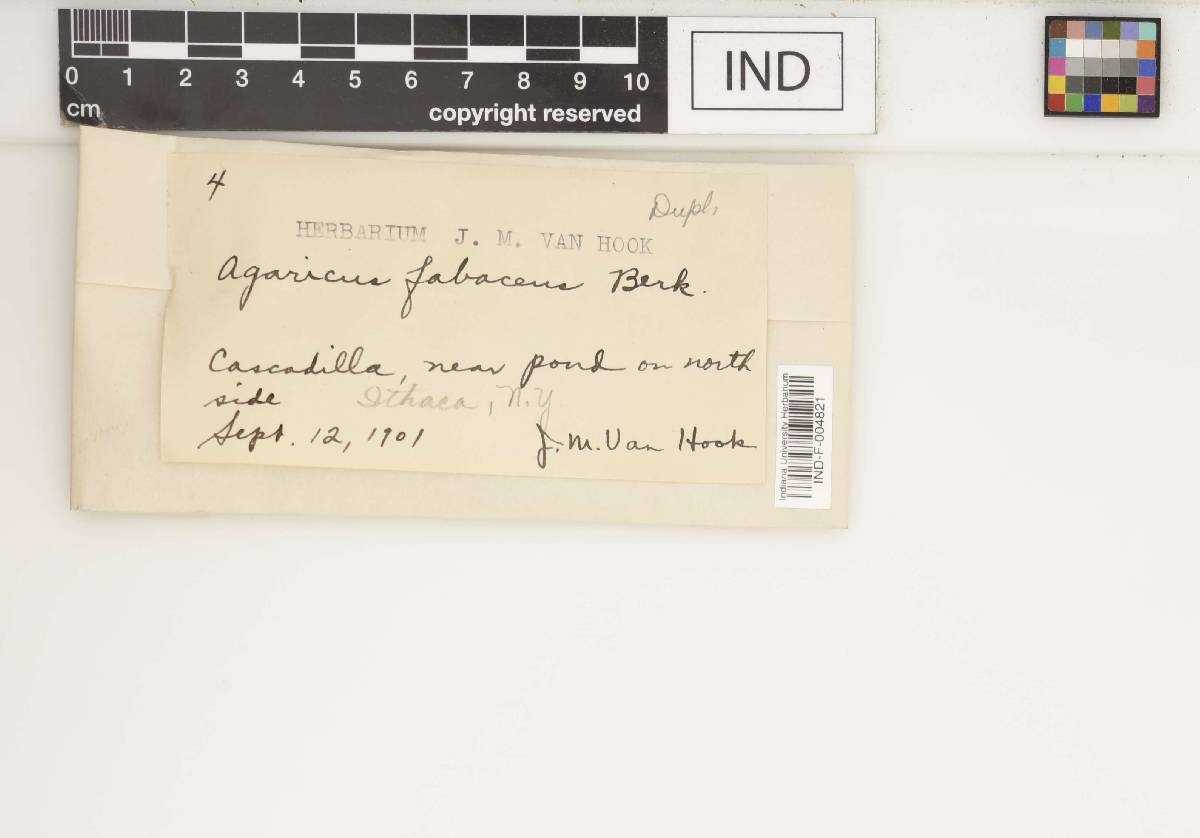 0 1 2 3 4 5 6 7 8 9 10
cm
copyright reserved
IND
4
Dupl.
HERBARIUM J. M. VAN HOOK
Agaricus fabaceus Berk.
Cascadilla, near pond on north
side Ithaca, N.Y
Sept. 12, 1901 J. M. Van Hook
Indiana University Herbarium
IND-F-004821